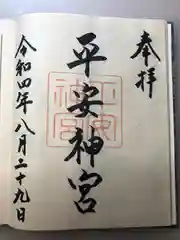 奉拝
平安神宮
令和四年八月二十九日